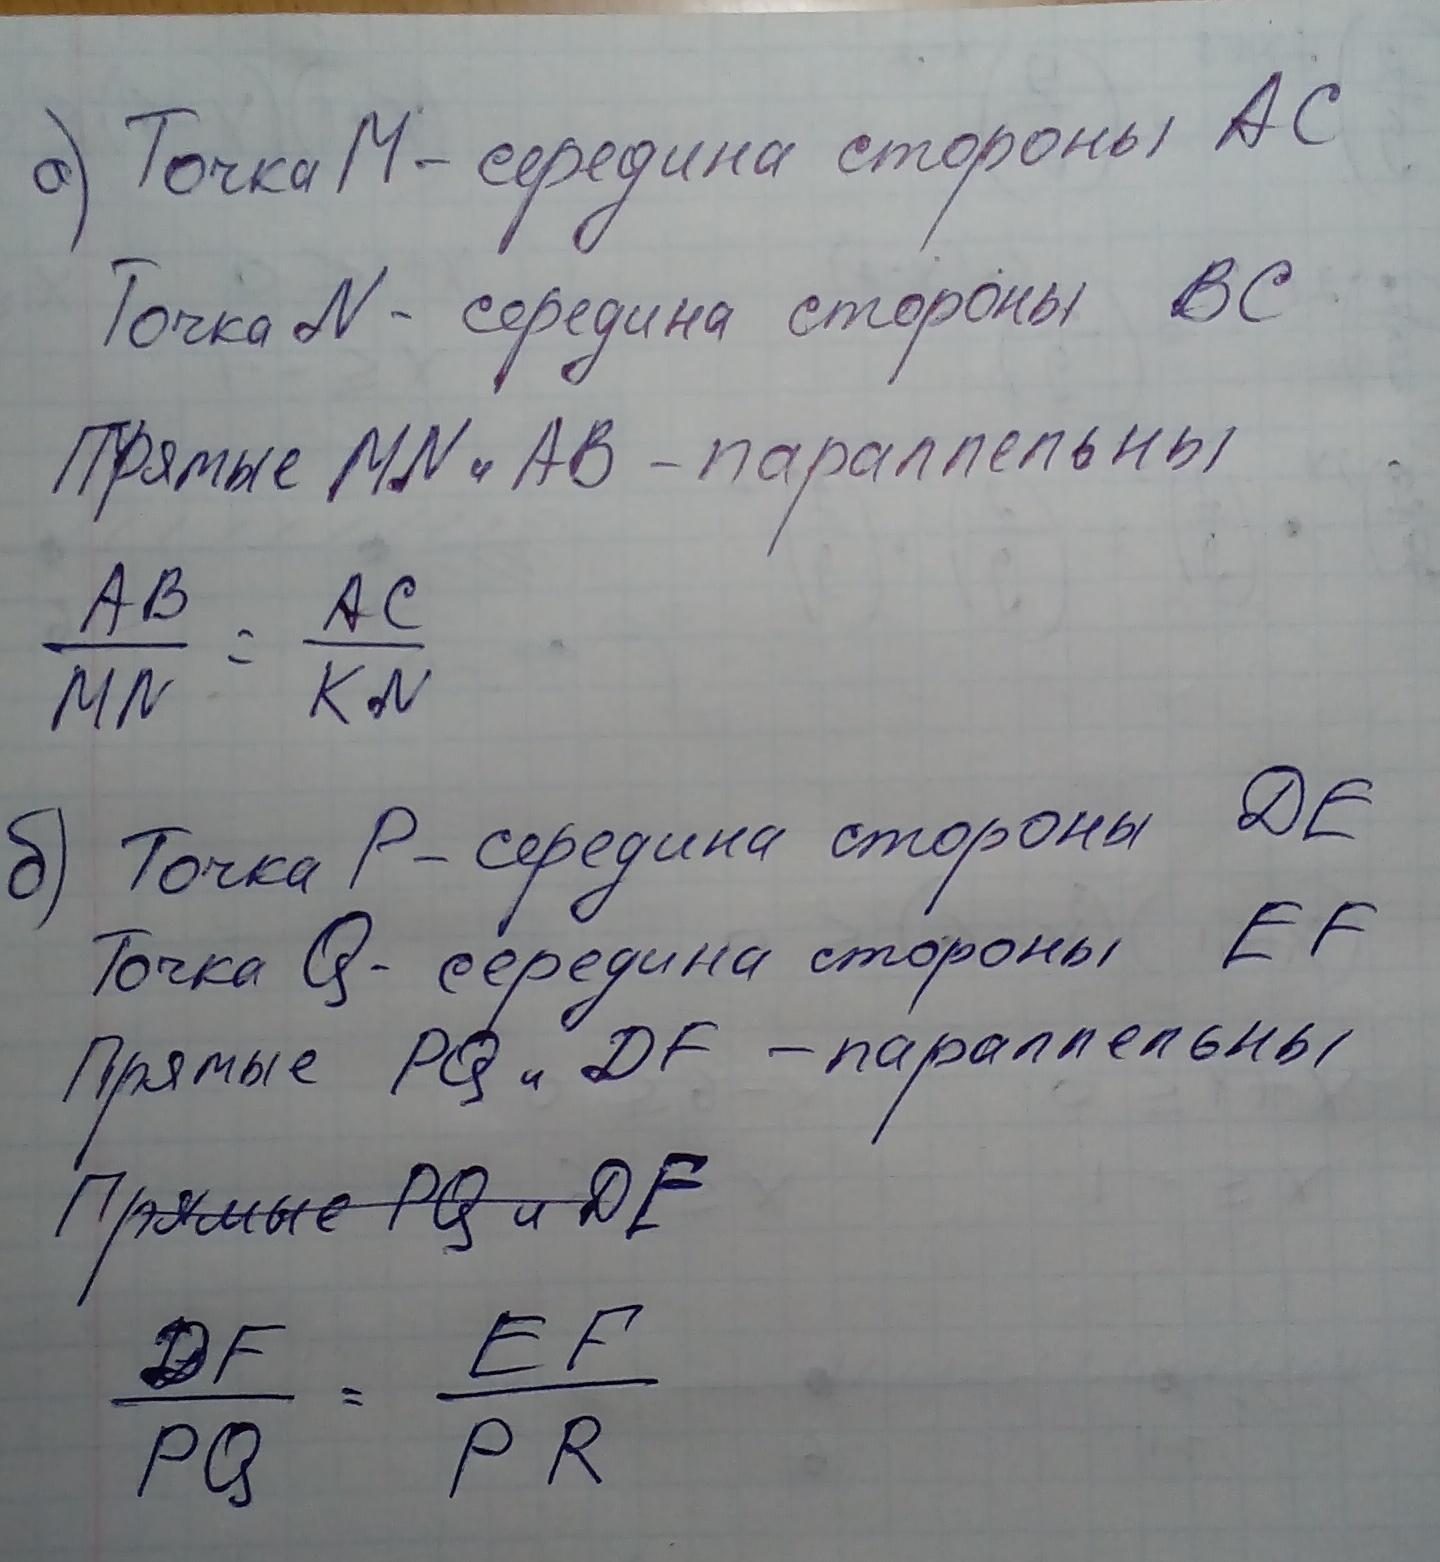 а) Точка M - середина стороны AC
Точка N - середина стороны BC
Прямые MN и AB - параллельны
AB/MN = AC/KN
б) Точка P - середина стороны DE
Точка Q - середина стороны EF
Прямые PQ и DF - параллельны
Прямые PQ и DF
DF/PQ = EF/PR